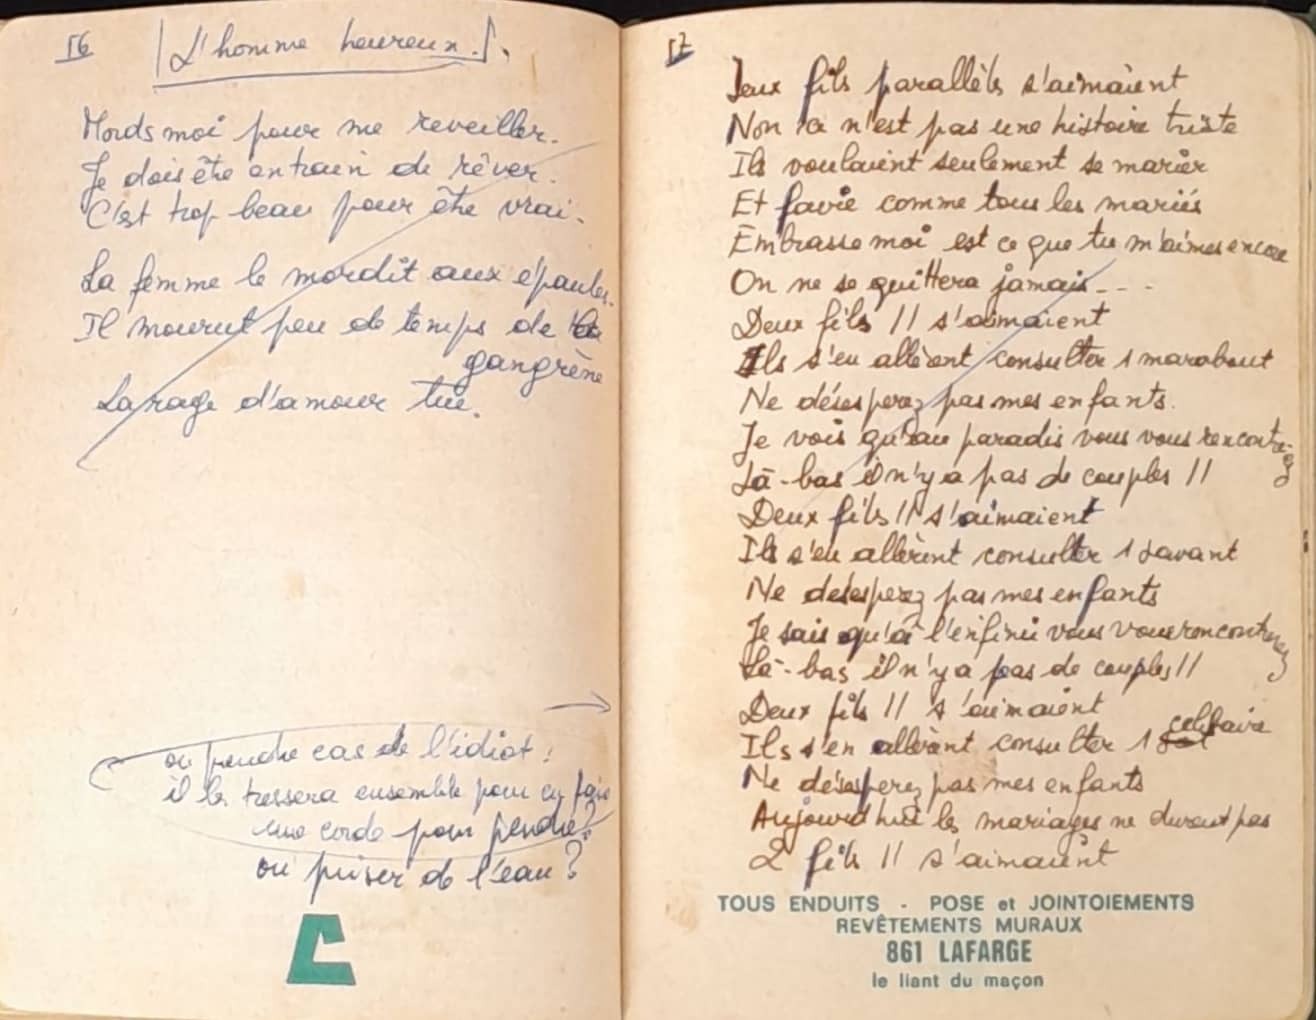 56
L'homme heureux.
Mords moi pour me reveiller.
Je dois être en train de rêver.
C'est trop beau pour être vrai.
La femme le mordit aux épaules.
Il mourut peu de temps de la
gangrène
La rage d'amour tue.
ou prendre cas de l'idiot :
il les tressera ensemble pour en faire
une corde pour pendre?
ou puiser de l'eau?
57
Deux fils parallèls s'aimaient
Non ça n'est pas une histoire triste
Ils voulaient seulement se marier
Et comme tous les mariés
Embrasse moi est ce que tu m'aimes encore
On ne se quittera jamais - - -
Deux fils // s'aimaient
Ils s'en allèent consulter 1 marabout
Ne désesperez pas mes enfants.
Je vois qu'au paradis vous vous rencontrez
Là-bas il n'y a pas de couples //
Deux fils // s'aimaient
Ils s'en allèrent consulter 1 savant
Ne désesperez pas mes enfants
Je sais qu'à l'enfini vous vous rencontrez
Là-bas il n'y a pas de couples //
Deux fils // s'aimaient
Ils s'en allèrent consulter 1 celibaire
Ne désesperez pas mes enfants
Aujourd'hui les mariages ne durent pas
2 fils // s'aimaient
TOUS ENDUITS - POSE et JOINTOIEMENTS
REVÊTEMENTS MURAUX
861 LAFARGE
le liant du maçon